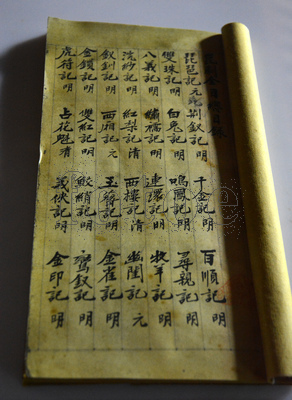 琵琶記元 荆釵記明 千金記明 百順記明
雙珠記明 白兔記明 鳴鳳記明 尋親記明
八義記明 繡襦記明 連環記明 牧羊記明
浣紗記明 紅梨記明 西樓記清 幽閨記元
釵釧記明 西廂記元 玉簪記明 金雀記明
金鎖記明 雙紅記明 鮫綃記明 鸞釵記明
虎符記明 占花魁清 義俠記明 金印記明